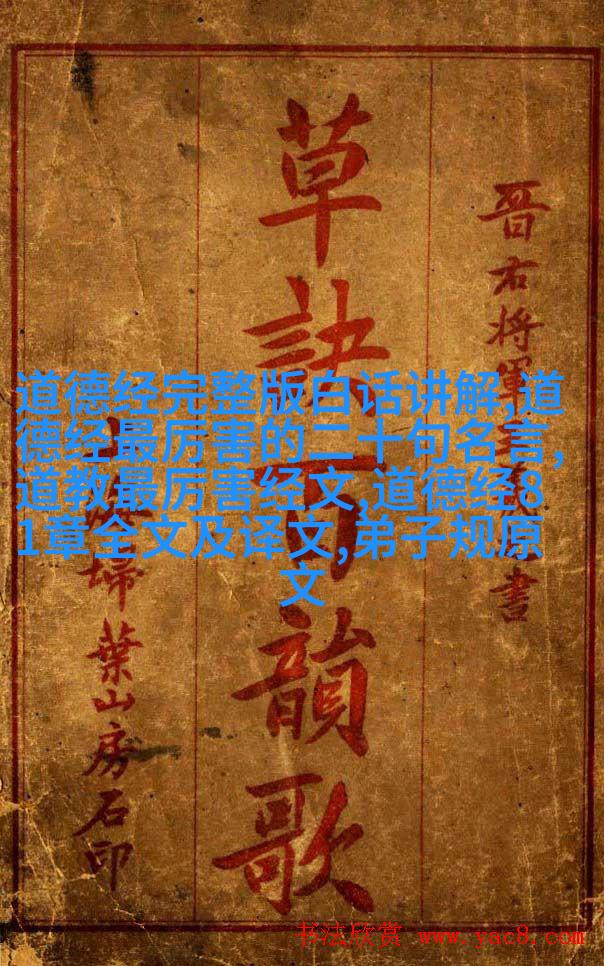 晉右將軍書
草訣百韻歌
埽葉山房石印
道德经完整版白话讲解,道
德经最厉害的二十句名言,
道教最厉害经文,道德经8
1章全文及译文,弟子规原
文
书法欣赏 www.yac8.com